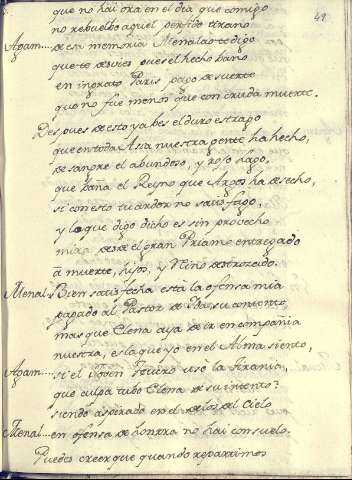 41
que no hai ora en el dia que comigo
no rebuelbo aquel perfido tirano
Agam.... de esa memoria Menalao te digo
que te desvies pues el hecho bano
en ingrato Paris pago de suerte
que no fue menos que con cruda muerte.
Despues de esto ya bes el duro estrago
que en toda Asia nuestra gente ha hecho,
de sangre el abundoso, y rojo lago,
que baña el Reyno que Argos ha desecho,
si con esto tu ardor no satisfago,
y lo que digo dicho es sin probecho
mira desde el gran Priamo entregado
a muerte, hijos, y Nino destrozado.
Menal.. Bien satisfecha está la ofensa mia
pagado al Pastor de Ida su contento,
mas que Elena aya de ir en compañia
nuestra, es la que yo en el Alma siento,
Agam.... si el usó la tirania,
que culpa tubo Elena de su intento?
siendo aspirado en el de los del Cielo
Menal.... en ofensa de honrra no hai consuelo.
Puedes creer que quando repartimos